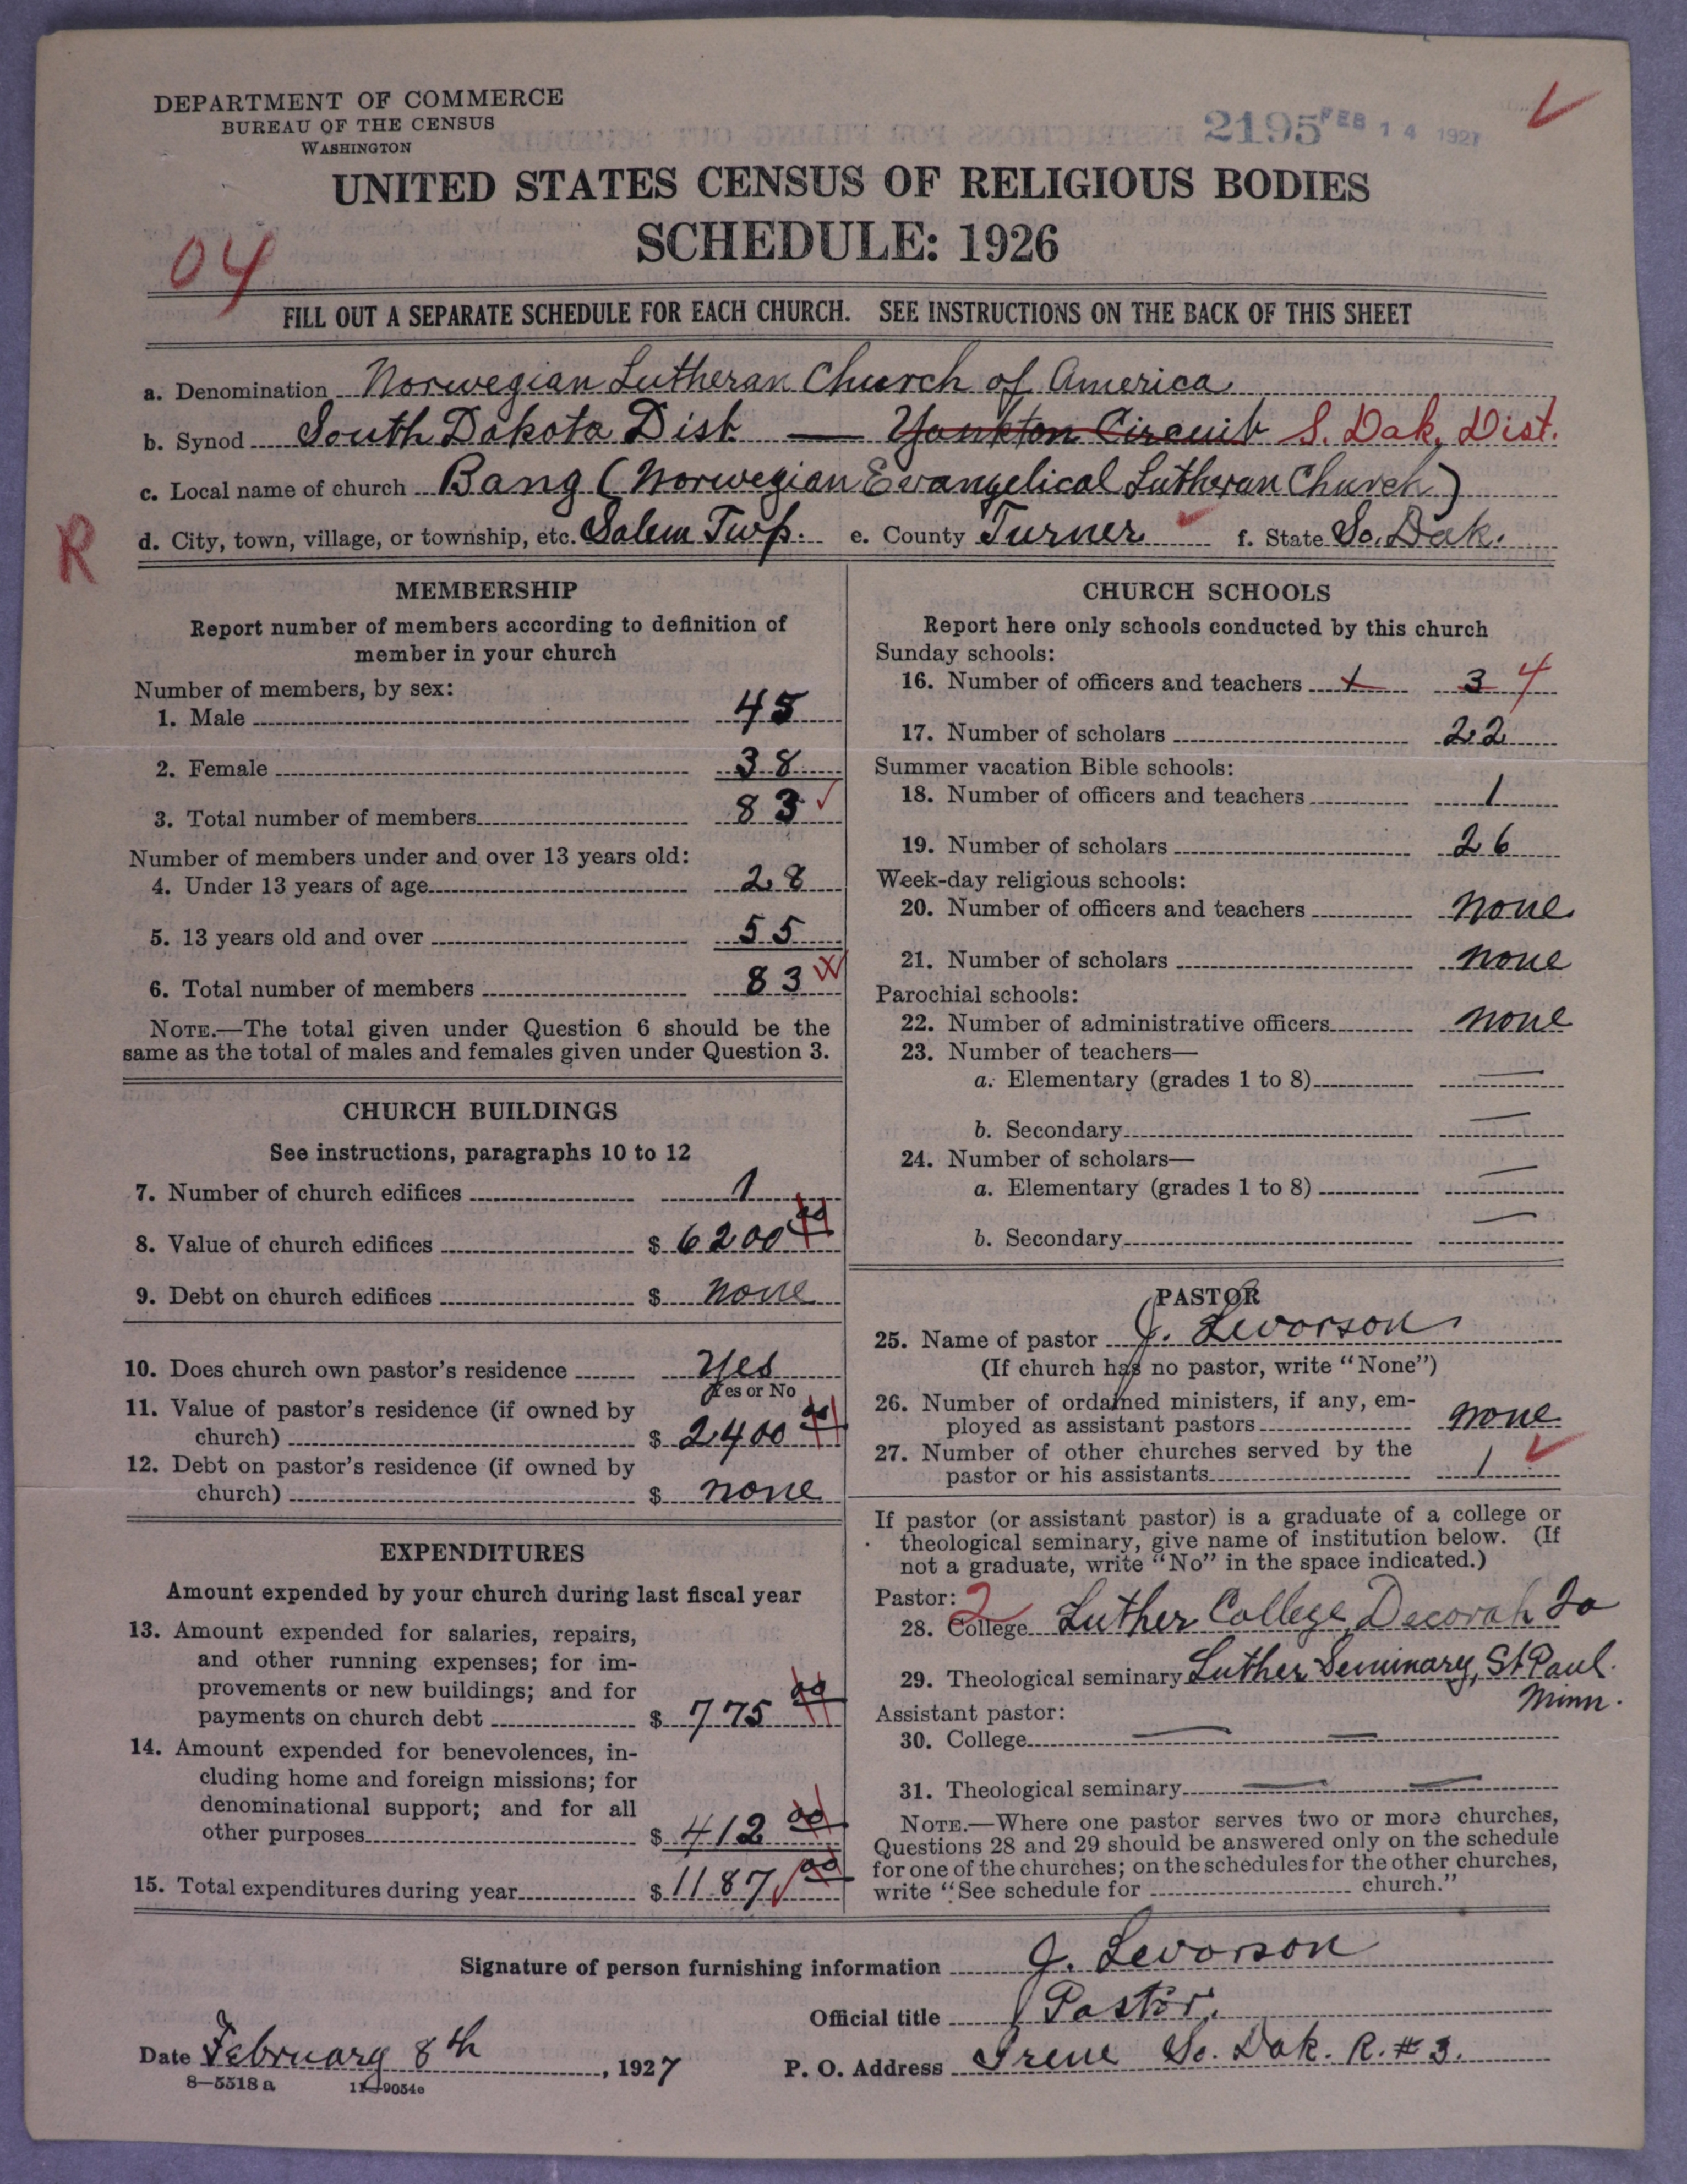 DEPARTMENT OF COMMERCE
BUREAU OF THE CENSUS
WASHINGTON
2195 FEB 14 1927
UNITED STATES CENSUS OF RELIGIOUS BODIES
SCHEDULE: 1926
04
FILL OUT A SEPARATE SCHEDULE FOR EACH CHURCH. SEE INSTRUCTIONS ON THE BACK OF THIS SHEET
a. Denomination Norwegian Lutheran Church of America
b. Synod South Dakota Dist. — Yankton Circuit S. Dak. Dist.
c. Local name of church Bang (Norwegian Evangelical Lutheran Church)
R
d. City, town, village, or township, etc. Salem Twp. e. County Turner f. State So. Dak.
MEMBERSHIP
Report number of members according to definition of
member in your church
Number of members, by sex:
1. Male 45
2. Female 38
3. Total number of members 83
Number of members under and over 13 years old:
4. Under 13 years of age 28
5. 13 years old and over 55
6. Total number of members 83
NOTE.—The total given under Question 6 should be the
same as the total of males and females given under Question 3.
CHURCH BUILDINGS
See instructions, paragraphs 10 to 12
7. Number of church edifices 1
8. Value of church edifices $ 6200 00
9. Debt on church edifices $ none
10. Does church own pastor's residence Yes
Yes or No
11. Value of pastor's residence (if owned by
church) $ 2400 00
12. Debt on pastor's residence (if owned by
church) $ none
EXPENDITURES
Amount expended by your church during last fiscal year
13. Amount expended for salaries, repairs,
and other running expenses; for im-
provements or new buildings; and for
payments on church debt $ 775 00
14. Amount expended for benevolences, in-
cluding home and foreign missions; for
denominational support; and for all
other purposes $ 412 00
15. Total expenditures during year $ 1187 00
CHURCH SCHOOLS
Report here only schools conducted by this church
Sunday schools:
16. Number of officers and teachers 1 3 4
17. Number of scholars 22
Summer vacation Bible schools:
18. Number of officers and teachers 1
19. Number of scholars 26
Week-day religious schools:
20. Number of officers and teachers none
21. Number of scholars none
Parochial schools:
22. Number of administrative officers none
23. Number of teachers—
a. Elementary (grades 1 to 8) —
b. Secondary —
24. Number of scholars—
a. Elementary (grades 1 to 8) —
b. Secondary —
PASTOR
25. Name of pastor J. Levorson
(If church has no pastor, write "None")
26. Number of ordained ministers, if any, em-
ployed as assistant pastors none
27. Number of other churches served by the
pastor or his assistants 1
If pastor (or assistant pastor) is a graduate of a college or
theological seminary, give name of institution below. (If
not a graduate, write "No" in the space indicated.)
Pastor: 2
28. College Luther College, Decorah Io
29. Theological seminary Luther Seminary, St Paul.
Minn.
Assistant pastor:
30. College — —
31. Theological seminary — —
NOTE.—Where one pastor serves two or more churches,
Questions 28 and 29 should be answered only on the schedule
for one of the churches; on the schedules for the other churches,
write "See schedule for church."
Signature of person furnishing information J. Levorson
Official title Pastor.
Date February 8th, 1927 P. O. Address Irene So. Dak. R. #3.
8—5518 a 11—9054e